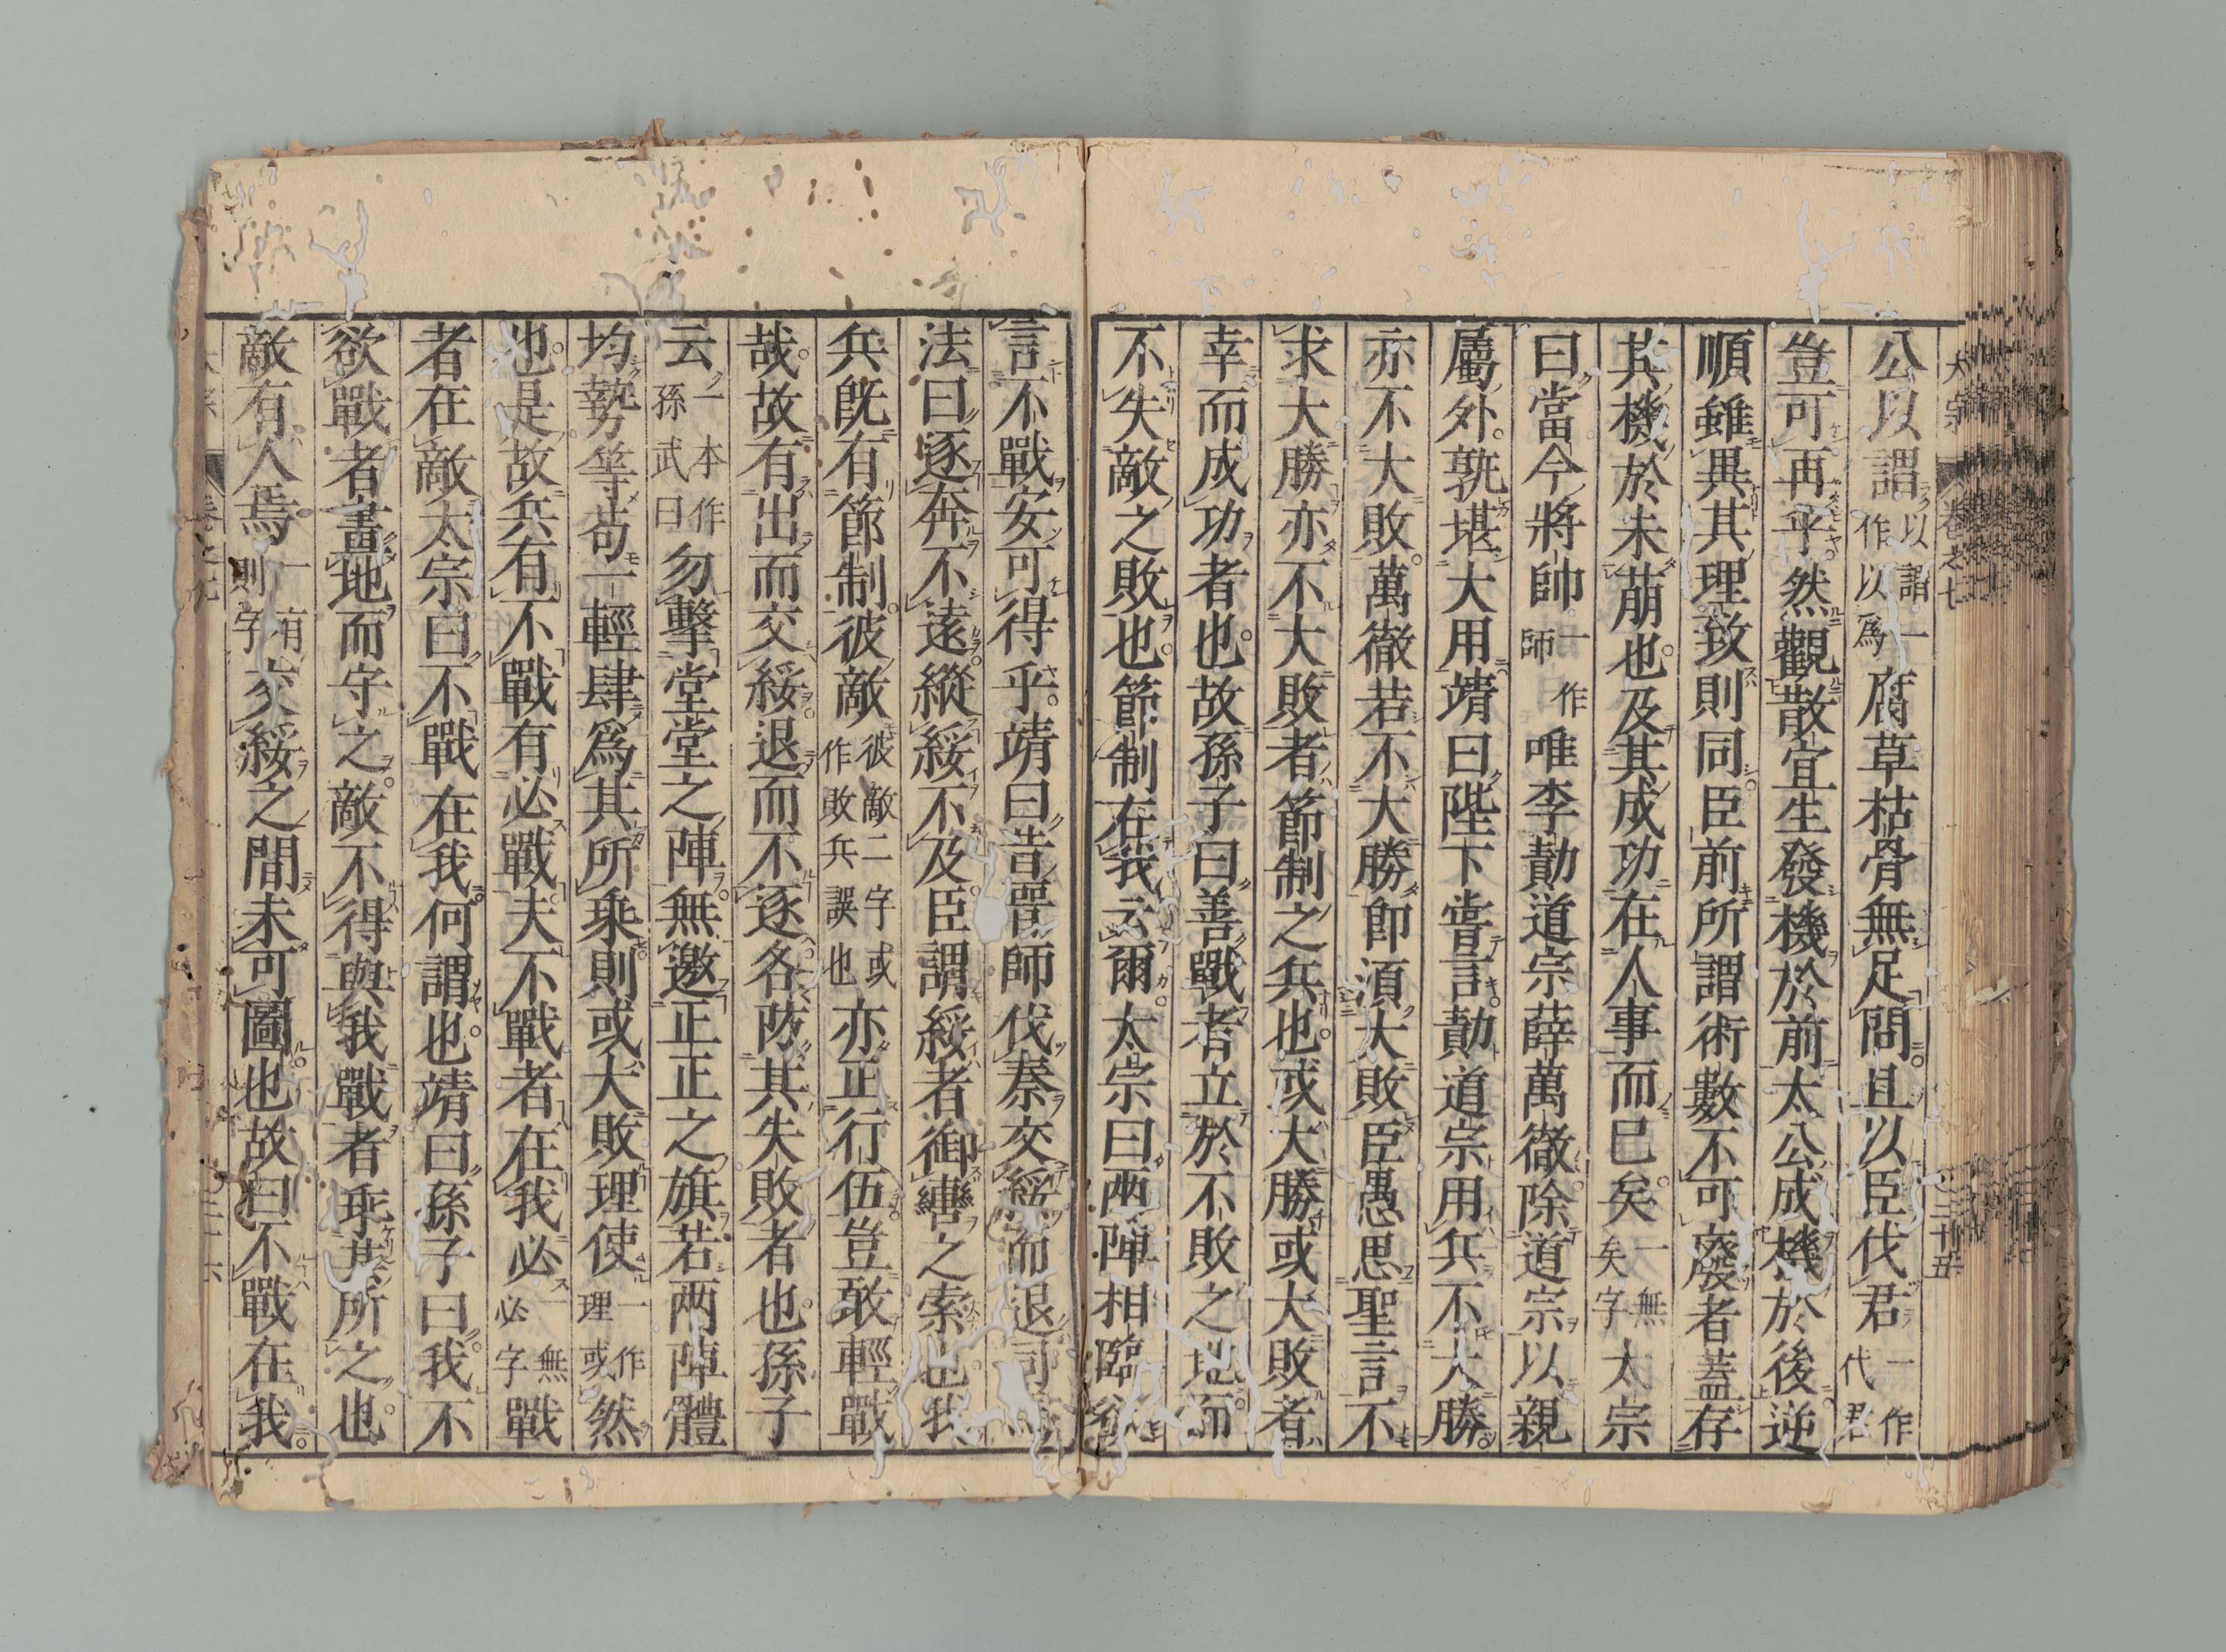 公以謂以謂一作以爲腐草枯骨無足問且以臣伐君一作代君
豈可再乎然觀散宜生發機於前太公成機於後逆
順雖異其理致則同臣前所謂術數不可廢者蓋存
其機於未萠也及其成功在人事而已矣一無矣字太宗
曰當今將帥一作師唯李勣道宗薛萬徹除道宗以親
屬外孰堪大用靖曰陛下嘗言勣道宗用兵不大勝
亦不大敗萬徹若不大勝即須大敗臣愚思聖言不
求大勝亦不大敗者節制之兵也或大勝或大敗者
幸而成功者也故孫子曰善戰者立於不敗之地而
不失敵之敗也節制在我云爾太宗曰兩陣相臨欲
言不戰安可得乎靖曰昔晉師伐秦交綏而退司馬
法曰逐奔不遠縱綏不及臣謂綏者御轡之索也我
兵既有節制彼敵彼敵二字或作敗兵誤也亦正行伍豈敢輕戰
哉故有出而交綏退而不逐各防其失敗者也孫子
云一本作孫武曰勿擊堂堂之陣無邀正正之旗若兩陣體
均勢等苟一輕肆爲其所乘則或大敗理使一作理或然
也是故兵有不戰有必戰夫不戰者在我必一無必字戰
者在敵太宗曰不戰在我何謂也靖曰孫子曰我不
欲戰者畫地而守之敵不得與我戰者乖其所之也
敵有人焉一有則字交綏之間未可圖也故曰不戰在我
太宗 卷之七 三十五
卷之七 三十六